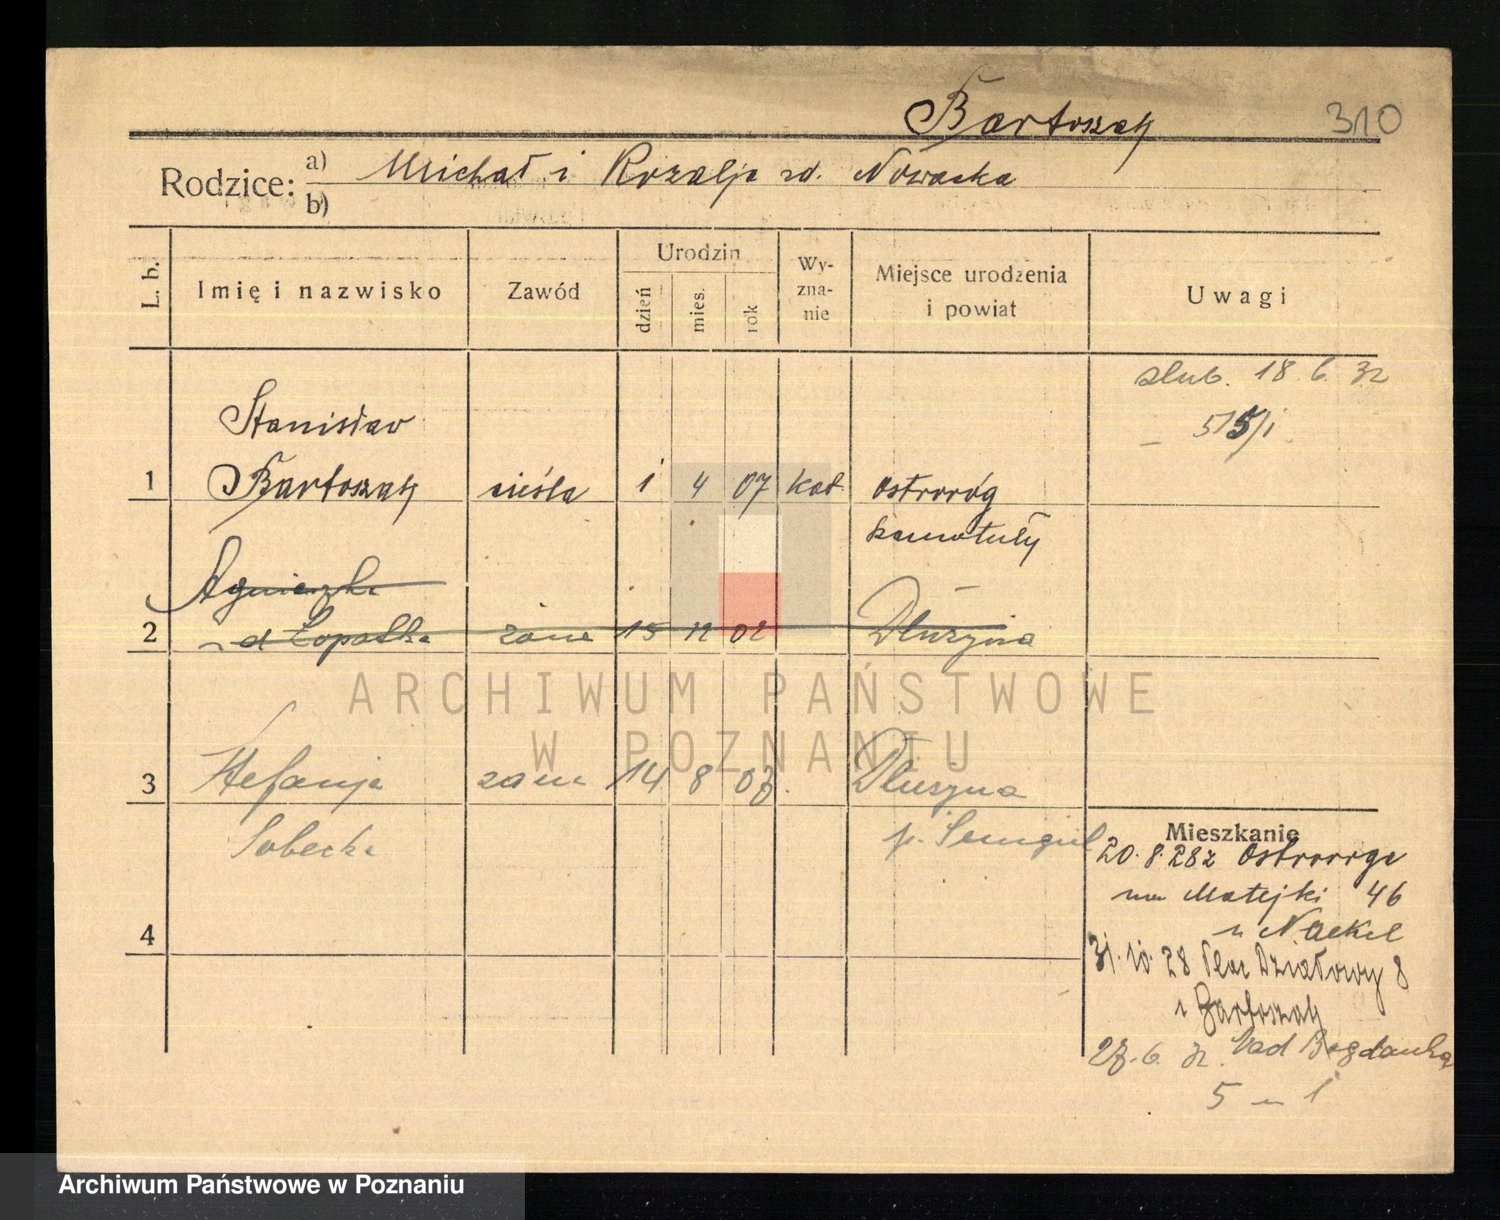 Bartoszak 310
Rodzice: a) Michał i Rozalja zd. Nowacka
b)
L. b. Imię i nazwisko Zawód Urodzin dzień mies. rok Wy-zna-nie Miejsce urodzenia i powiat Uwagi
ślub. 18 6 32
Stanisław
1 Bartoszak cieśla 1 4 07 kat. Ostroróg
Szamotuły
Agnieszka
2 zd Łopatka żona 15 12 02 Dłużyna
3 Stefanja żona 14 8 07 Dłużyna
Sobecka p. Śmigiel
Mieszkanie
20. 8. 28 z Ostroroga
na Matejki 46
u Nackel
4
31. 10. 28 Plac Działowy 8
u Bartoszak
27. 6. 32. nad Bogdanką
5 m 1
ARCHIWUM PAŃSTWOWE
W POZNANIU
Archiwum Państwowe w Poznaniu